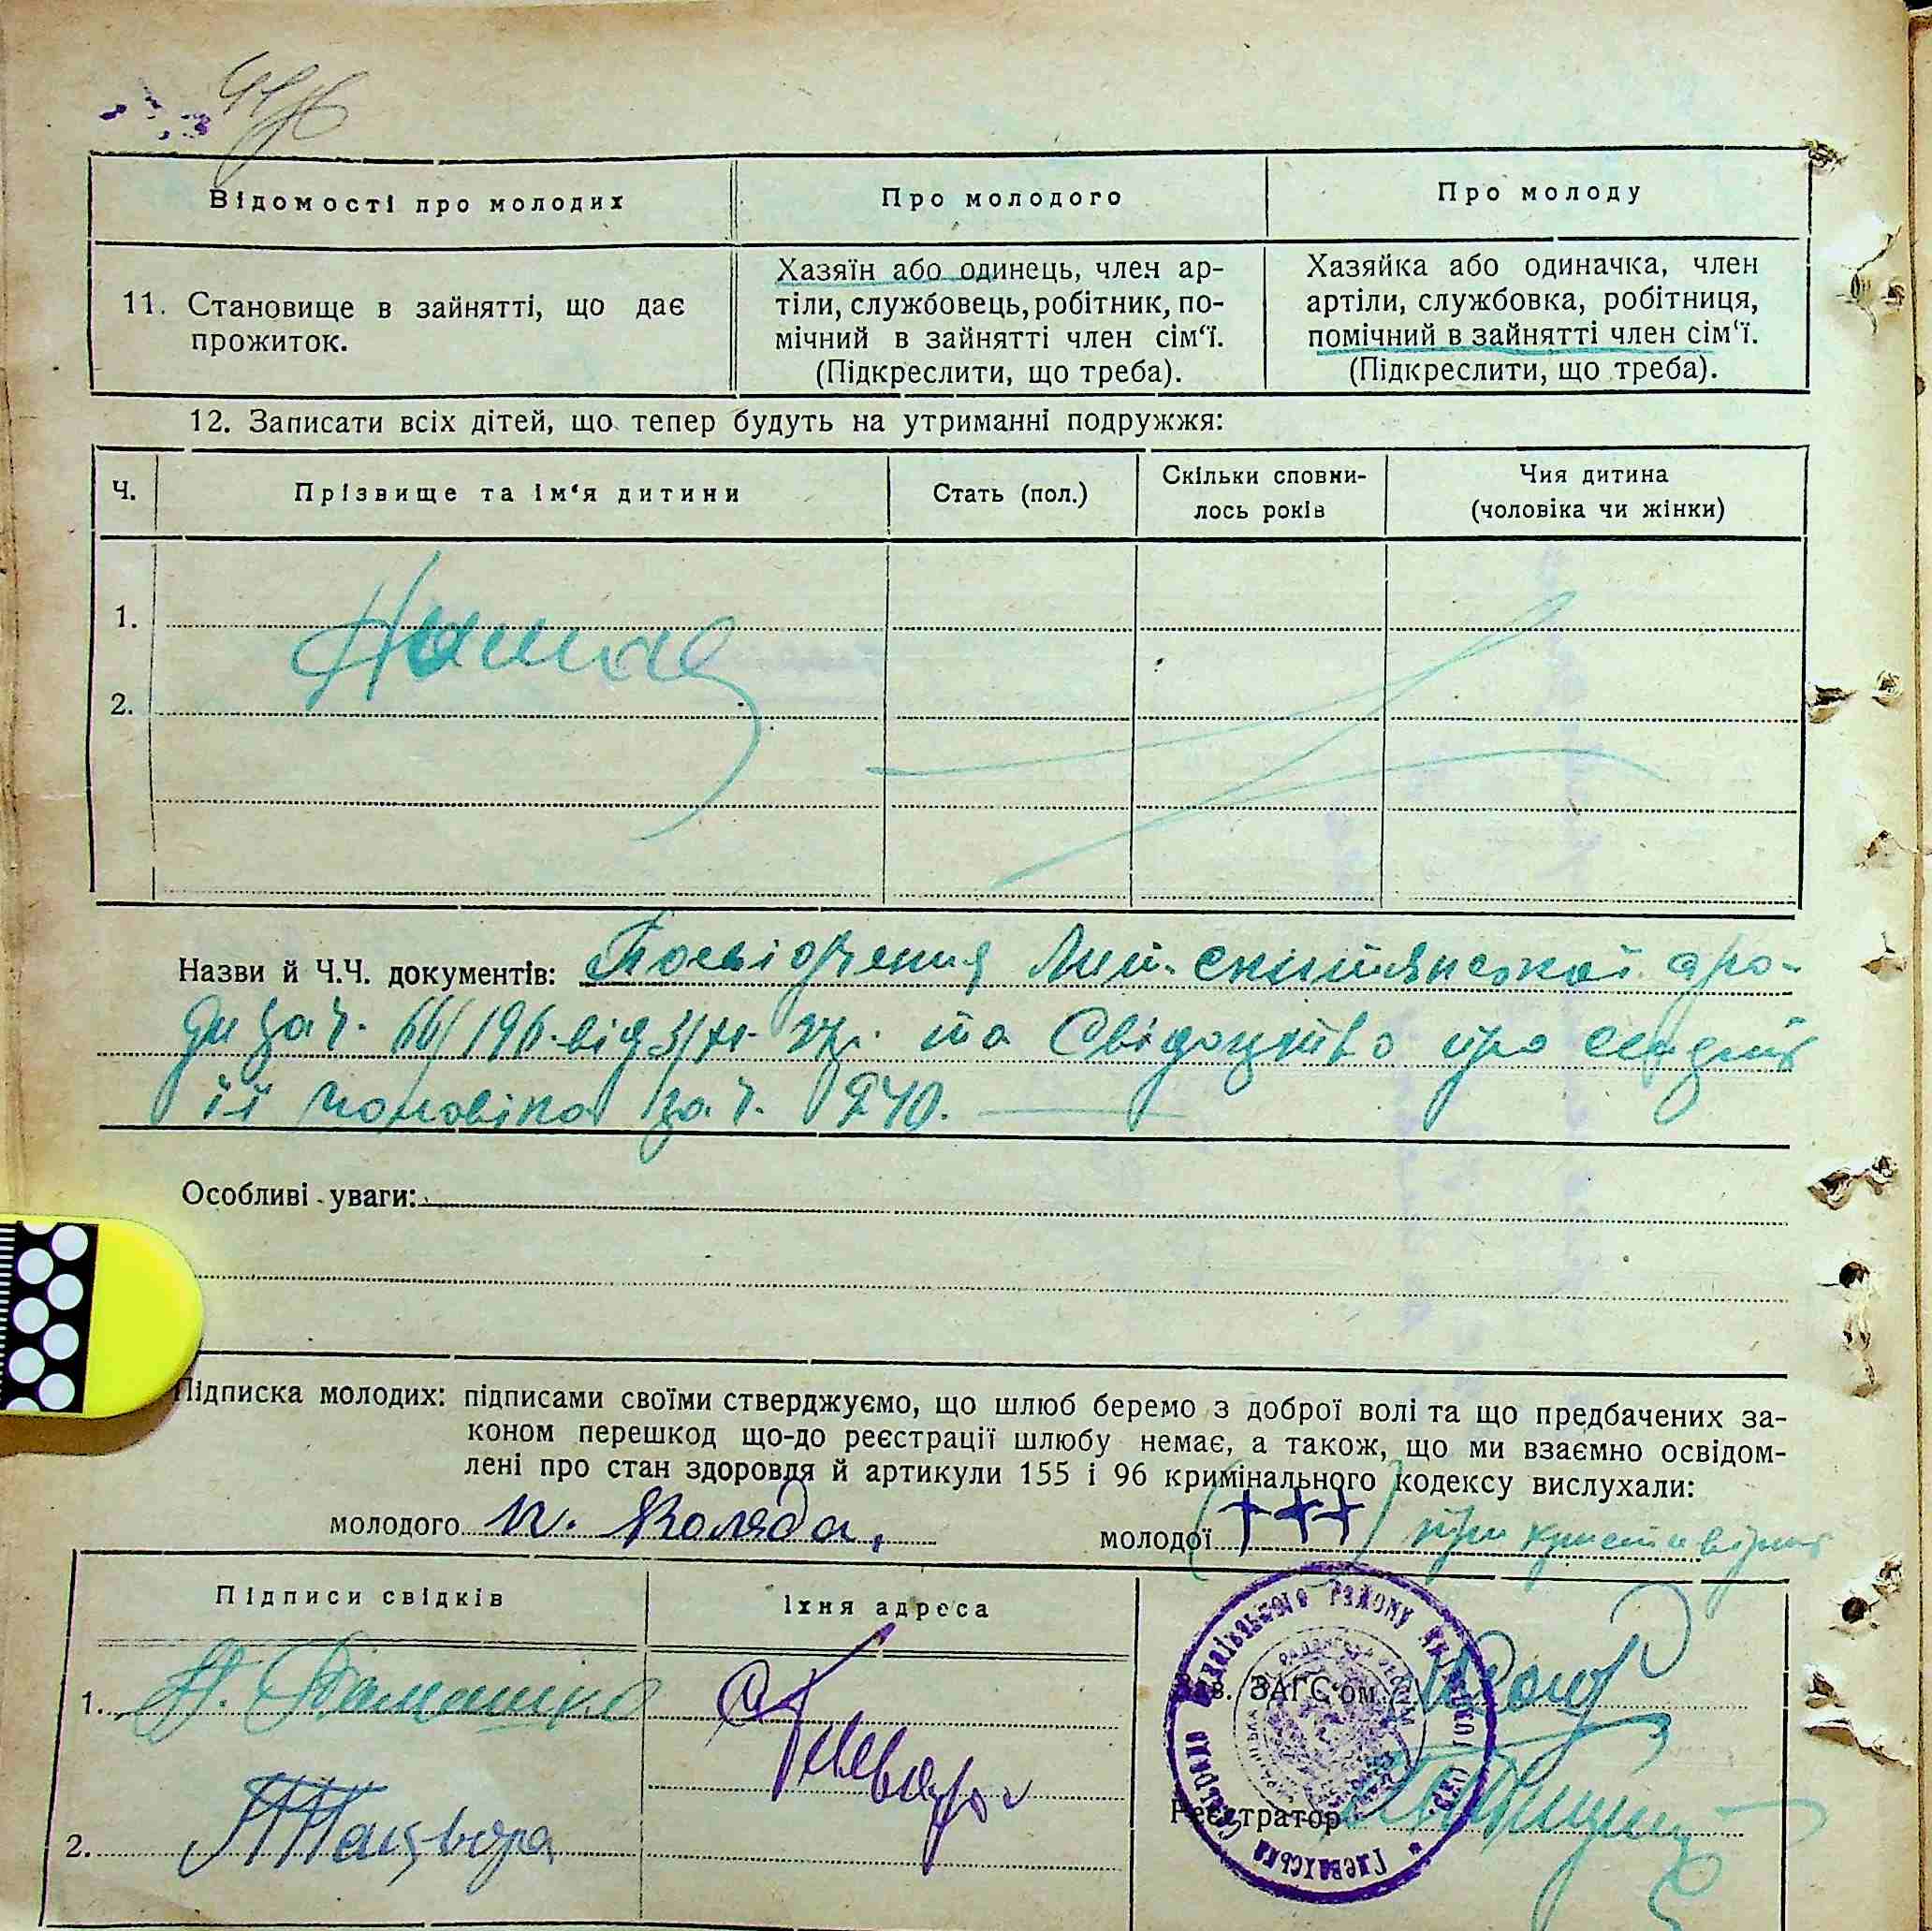 Відомості про молодих
Про молодого
Про молоду
11. Становище в зайнятті, що дає
прожиток.
Хазяїн або одинець, член ар-
тіли, службовець, робітник, по-
мічний в зайнятті член сім‘ї.
(Підкреслити, що треба).
Хазяйка або одиначка, член
артіли, службовка, робітниця,
помічний в зайнятті член сім‘ї.
(Підкреслити, що треба).
12. Записати всіх дітей, що тепер будуть на утриманні подружжя:
Ч.
Прізвище та ім‘я дитини
Стать (пол.)
Скільки сповни-
лось років
Чия дитина
(чоловіка чи жінки)
1.
Немає
2.
Назви й Ч.Ч. документів: Посвідчення
за ч. 66/196 від та Свідоцтво про
її чоловіка за ч. 240.
Особливі уваги:
Підписка молодих: підписами своїми стверджуємо, що шлюб беремо з доброї волі та що предбачених за-
коном перешкод що-до реєстрації шлюбу немає, а також, що ми взаємно освідом-
лені про стан здоровля й артикули 155 і 96 кримінального кодексу вислухали:
молодого Коляда,
молодої (+++)
Підписи свідків
Їхня адреса
1.
Зав. ЗАГС‘ом
2.
Реєстратор